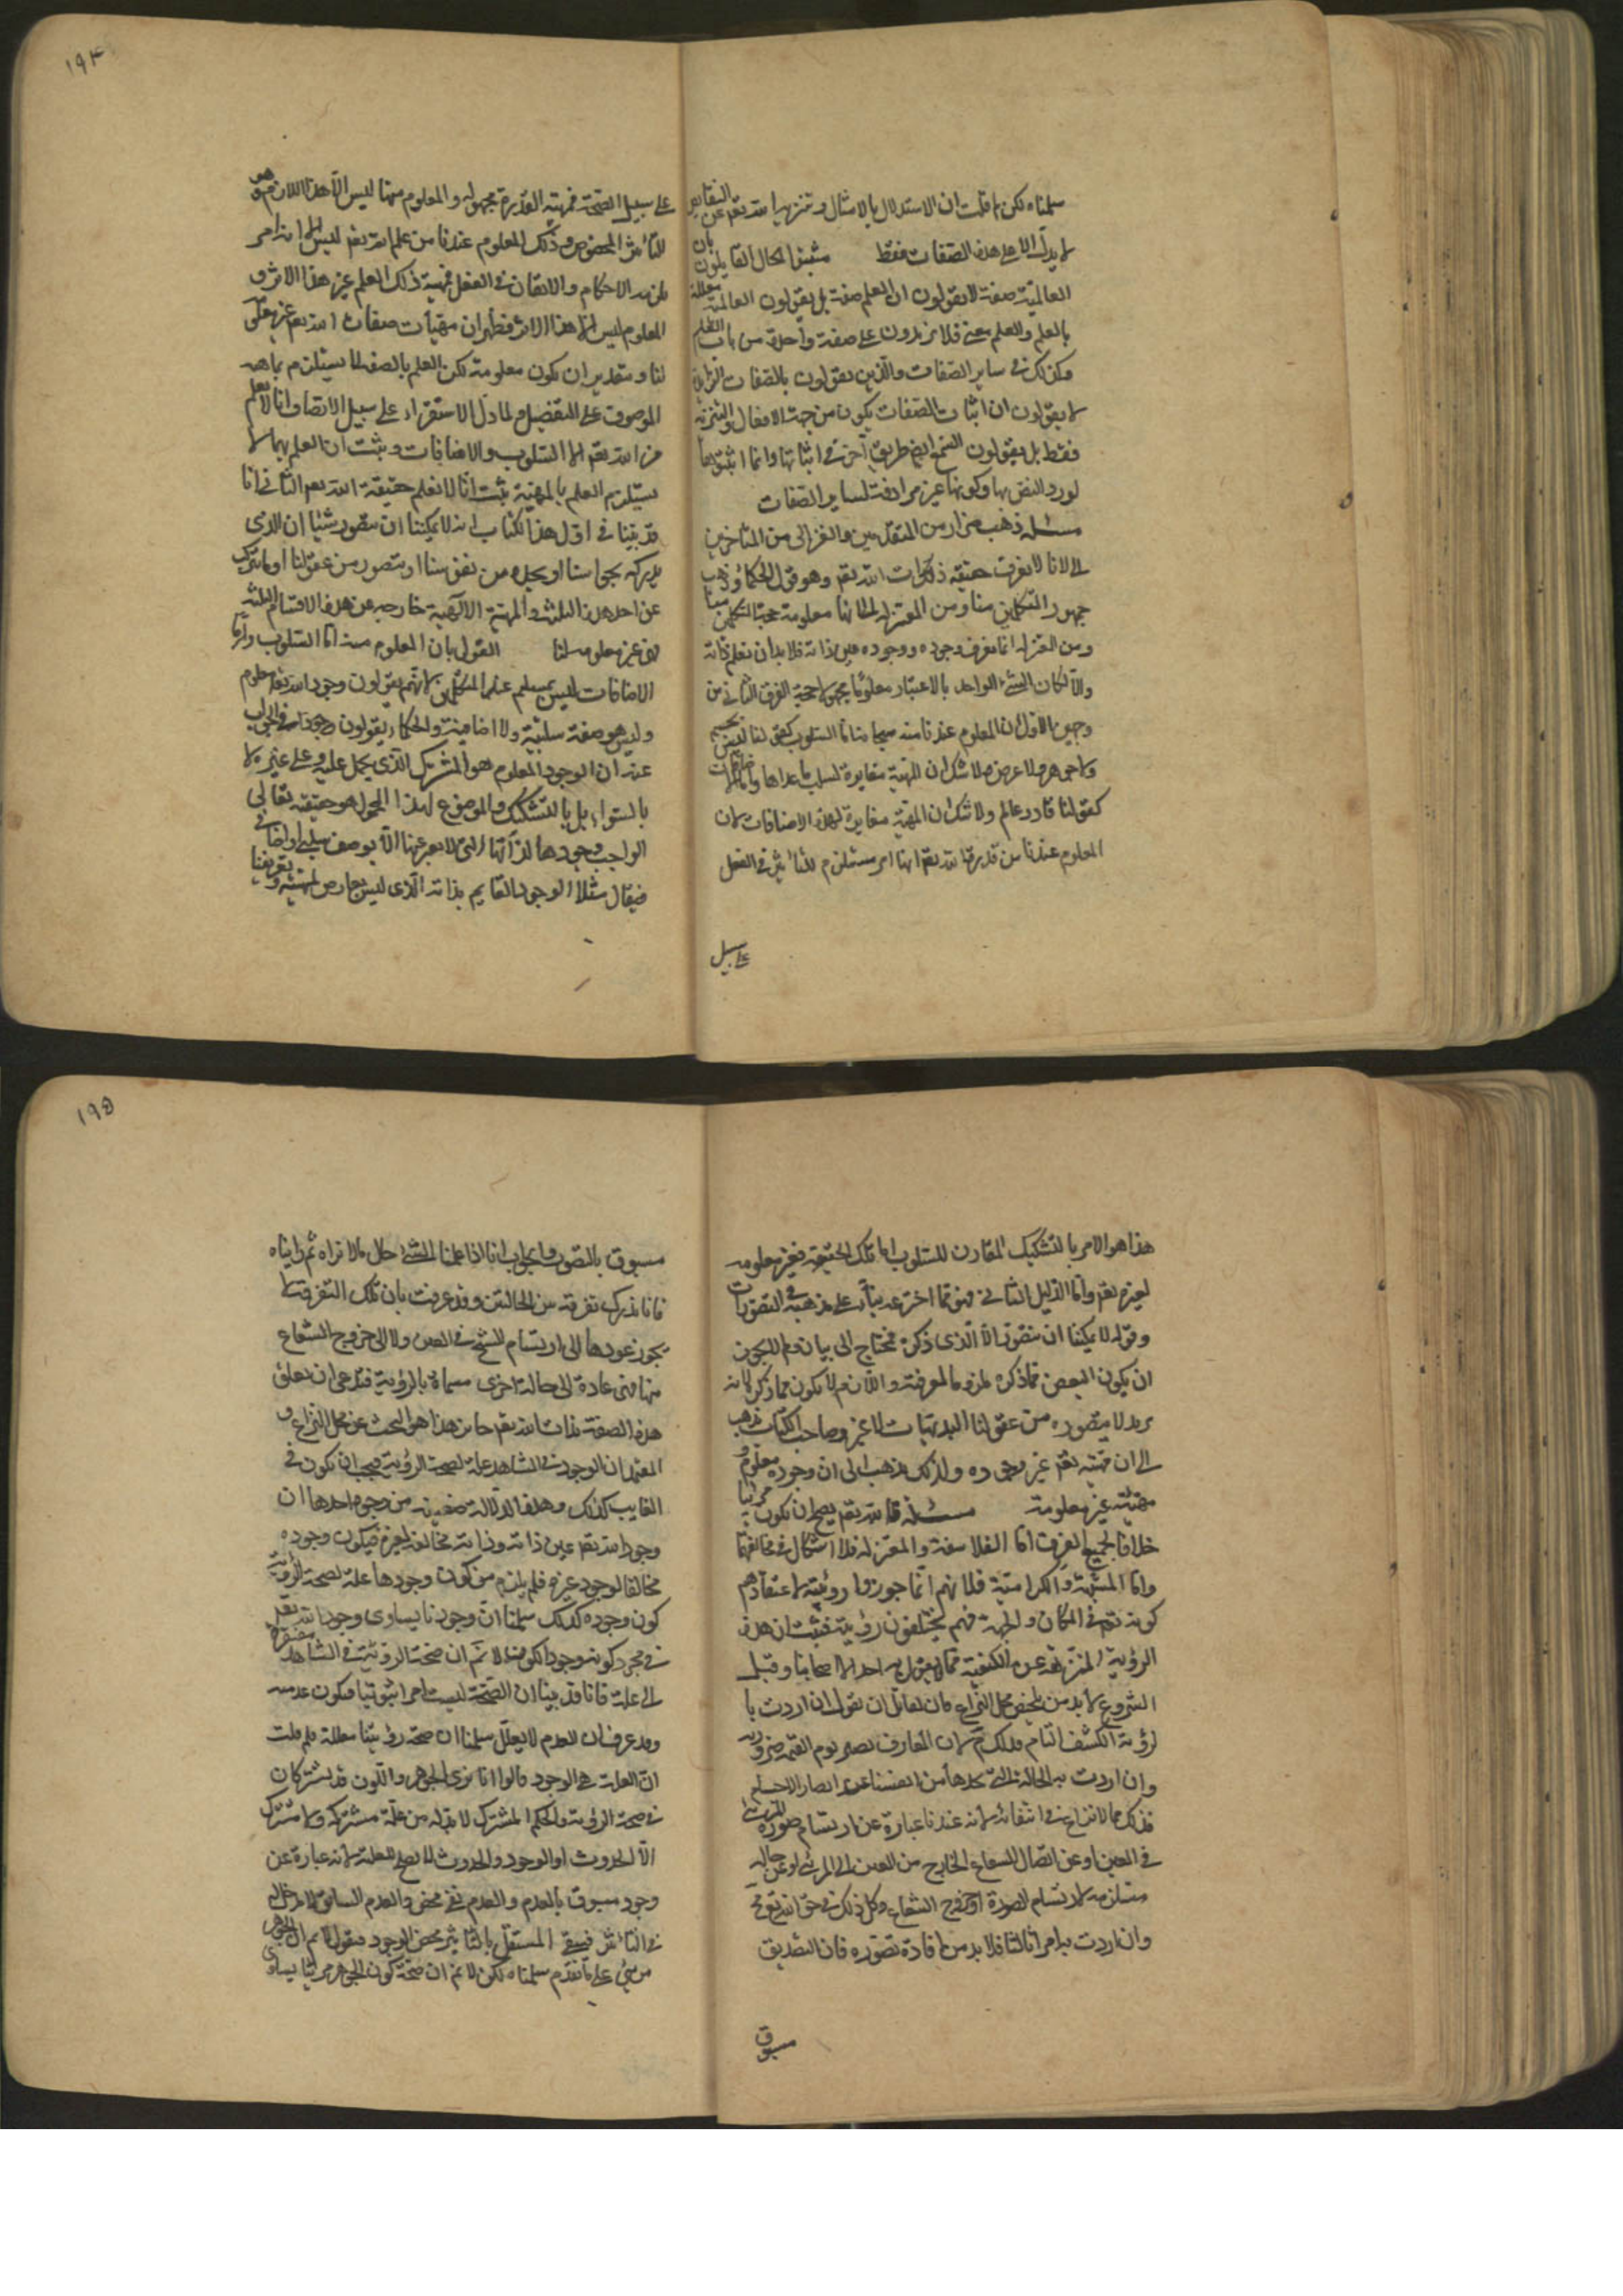 سلمناه لكن ما قلت ان الاستدلال بالامثال وتنزيه الله تعم عن النقايص
لا يدل الا على هذه الصفات فقط مثبتوا الحال القايلون بان
العالمية صفة لا يقولون ان العلم صفة بل يقولون العالمية معللة
بالعلم والعلم معنى فلا يزيدون على صفة واحدة من باب العلم
وكذلك في ساير الصفات والذين يقولون بالصفات الزايدة
لا يقولون ان اثبات الصفات يكون من جهة الافعال والتنزيه
فقط بل يقولون السمع ايض طريق آخر في اثباتها وانما اثبتوها
لورود النص بها وكونها غير مرادفة لساير الصفات
مسئلة ذهب ضرار من المتقدمين والغزالى من المتاخرين
الى انا لا نعرف حقيقة ذات الله تعم وهو قول الحكماء وذهب
جمهور المتكلمين منا ومن المعتزلة الى انها معلومة حجة المتكلمين منا
ومن المعتزلة انا نعرف وجوده ووجوده عين ذاته فلا بد ان نعلم ذاته
والا لكان الشئ الواحد بالاعتبار معلوما مجهولا حجة الفرق الثانى من
وجهين الاول ان المعلوم عندنا منه سبحانه اما السلوب كقولنا ليس بجسم
ولا جوهر ولا عرض ولا شك ان المهية مغايرة لسلب ما عداها واما الاضافات
كقولنا قادر عالم ولا شك ان المهية مغايرة لهذه الاضافات لان
المعلوم عندنا من قدرة الله تعم انها امر مستلزم للتاثير في الفعل
على سبيل
١٩٤
على سبيل الصحة فمهية القدرة مجهولة والمعلوم منها ليس الا هذا اللازم وهو
التاثير المخصوص وكذلك المعلوم عندنا من علم الله تعم ليس الا انه امر
يلزمه الاحكام والاتقان في الفعل فمهية ذلك العلم غير هذا الاثر و
المعلوم ليس الا هذا الاثر فظهر ان مهيات صفات الله تعم غير معقولة
لنا وبتقدير ان تكون معلومة لكن العلم بالصفة لا يستلزم ماهية
الموصوف على التفصيل ولما دل الاستقراء على سبيل الانصاف انا لا نعلم
من الله تعم الا السلوب والاضافات وثبت ان العلم بهما لا
يستلزم العلم بالمهية ثبت انا لا نعلم حقيقة الله تعم الثانى انا
قد بينا فى اول هذا الكتاب انه لا يمكننا ان نتصور شيئا الا الذى
ندركه بحواسنا او نجده من نفوسنا او نتصوره من عقولنا او ما يتركب
عن احد هذه الثلثة والمهية الالهية خارجه عن هذه الاقسام الثلثة
فهى غير معلومة لنا القول بان المعلوم منه اما السلوب واما
الاضافات ليس بمسلم عند المتكلمين لانهم يقولون وجود الله تعم معلوم
وليس هو صفة سلبية ولا اضافية والحكماء يقولون وجوده في الجواب
عنه ان الوجود المعلوم هو المشترك الذى يحمل عليه وعلى غيره لا
بالسواء بل بالتشكيك والموضوع لهذا المحمول هو حقيقته تعالى
الواجب وجودها لذاتها التى لا يعبر عنها الا بوصف سلبى او اضافى
فيقال مثلا الوجود القايم بذاته الذى ليس بعارض لمهية وتعريفنا
هذا هو الامر بالتشكيك المقارن للسلوب اما تلك الحقيقة فغير معلومه
لغيره تعم واما الدليل الثانى فهو مما اخترعه بناء على مذهبه فى التصورات
وقوله لا يمكننا ان نتصور الا الذى ذكره محتاج الى بيان ولم لا يجوز
ان يكون البعض مما ذكره ملزوما لمعرفته واللازم لا يكون مما ذكر لانه
يريد لا يتصوره من عقولنا البديهيات لا غير وصاحب الكتاب يذهب
الى ان مهيته تعم غير وجوده ولذلك يذهب الى ان وجوده معلوم و
مهيته غير معلومة مسئلة قا الله تعم يصح ان يكون مرئيا
خلافا لجميع الفرق اما الفلاسفة والمعتزلة فلا اشكال في مخالفتهما
واما المشبهة والكرامية فلانهم انما جوزوا رؤيته لاعتقادهم
كونه تعم فى المكان والجهة فهم يحيلون رؤيته فثبت ان هذه
الرؤية المنزهة عن الكيفية مما لا يقول به احد الا اصحابنا وقبل
الشروع لا بد من تلخيص محل النزاع فان لقائل ان يقول ان اردت با
لرؤية الكشف التام فذلك مم لان المعارف تصير يوم القيمة ضرورية
وان اردت به الحالة التى نجدها من انفسنا عند ابصار الاجسام
فذلك مما لا نزاع فى انتفائه لانه عندنا عبارة عن ارتسام صورة المرئى
فى العين او عن اتصال الشعاع الخارج من العين الى المرئى او عن حالة
مستلزمه لارتسام الصورة او خروج الشعاع وكل ذلك فى حق الله تعم مح
وان اردت به امرا ثالثا فلا بد من افادة تصوره فان التصديق
مسبوق
١٩٥
مسبوق بالتصور والجواب انا اذا علمنا الشئ حال ما لا نراه ثم رايناه
فانا ندرك تفرقة بين الحالتين وقد عرفت بان تلك التفرقة لا
يجوز عودها الى ارتسام الشبح فى العين ولا الى خروج الشعاع
منها فهى عائدة الى حالة اخرى مسماة بالرؤية فندعى ان تعلق
هذه الصفة بذات الله تعم جايز هذا هو البحث عن محل النزاع و
المعتمد ان الوجود فى الشاهد علة لصحة الرؤية فيجب ان تكون فى
الغايب كذلك وهذه الدلالة ضعيفة من وجوه احدها ان
وجود الله تعم عين ذاته وذاته مخالفة لغيره فيكون وجوده
مخالفا لوجود غيره فلم يلزم من كون وجودها علة لصحة الرؤية
كون وجوده كذلك سلمنا ان وجودنا يساوى وجود الله تعم
فى مجرد كونه وجودا لكن لا نم ان صحة الرؤية فى الشاهد مفتقرة
الى علة فانا قد بينا ان الصحة ليست امرا ثبوتيا فيكون عدميه
وقد عرف ان العدم لا يعلل سلمنا ان صحة رؤيتنا معللة فلم قلت
ان العلة هى الوجود قالوا انا نرى الجوهر واللون قد يشتركان
فى صحة الرؤية والحكم المشترك لا بد له من علة مشتركة ولا مشترك
الا الحدوث او الوجود والحدوث لا يصلح للعلية لانه عبارة عن
وجود مسبوق بالعدم والعدم نفى محض والعدم السابق لا دخل له
فى التاثير فبقى المستقل بالتاثير محض الوجود فنقول لا نم ان الجوهر
مرئى على ما تقدم سلمناه لكن لا نم ان صحة كون الجوهر مرئيا يساوى